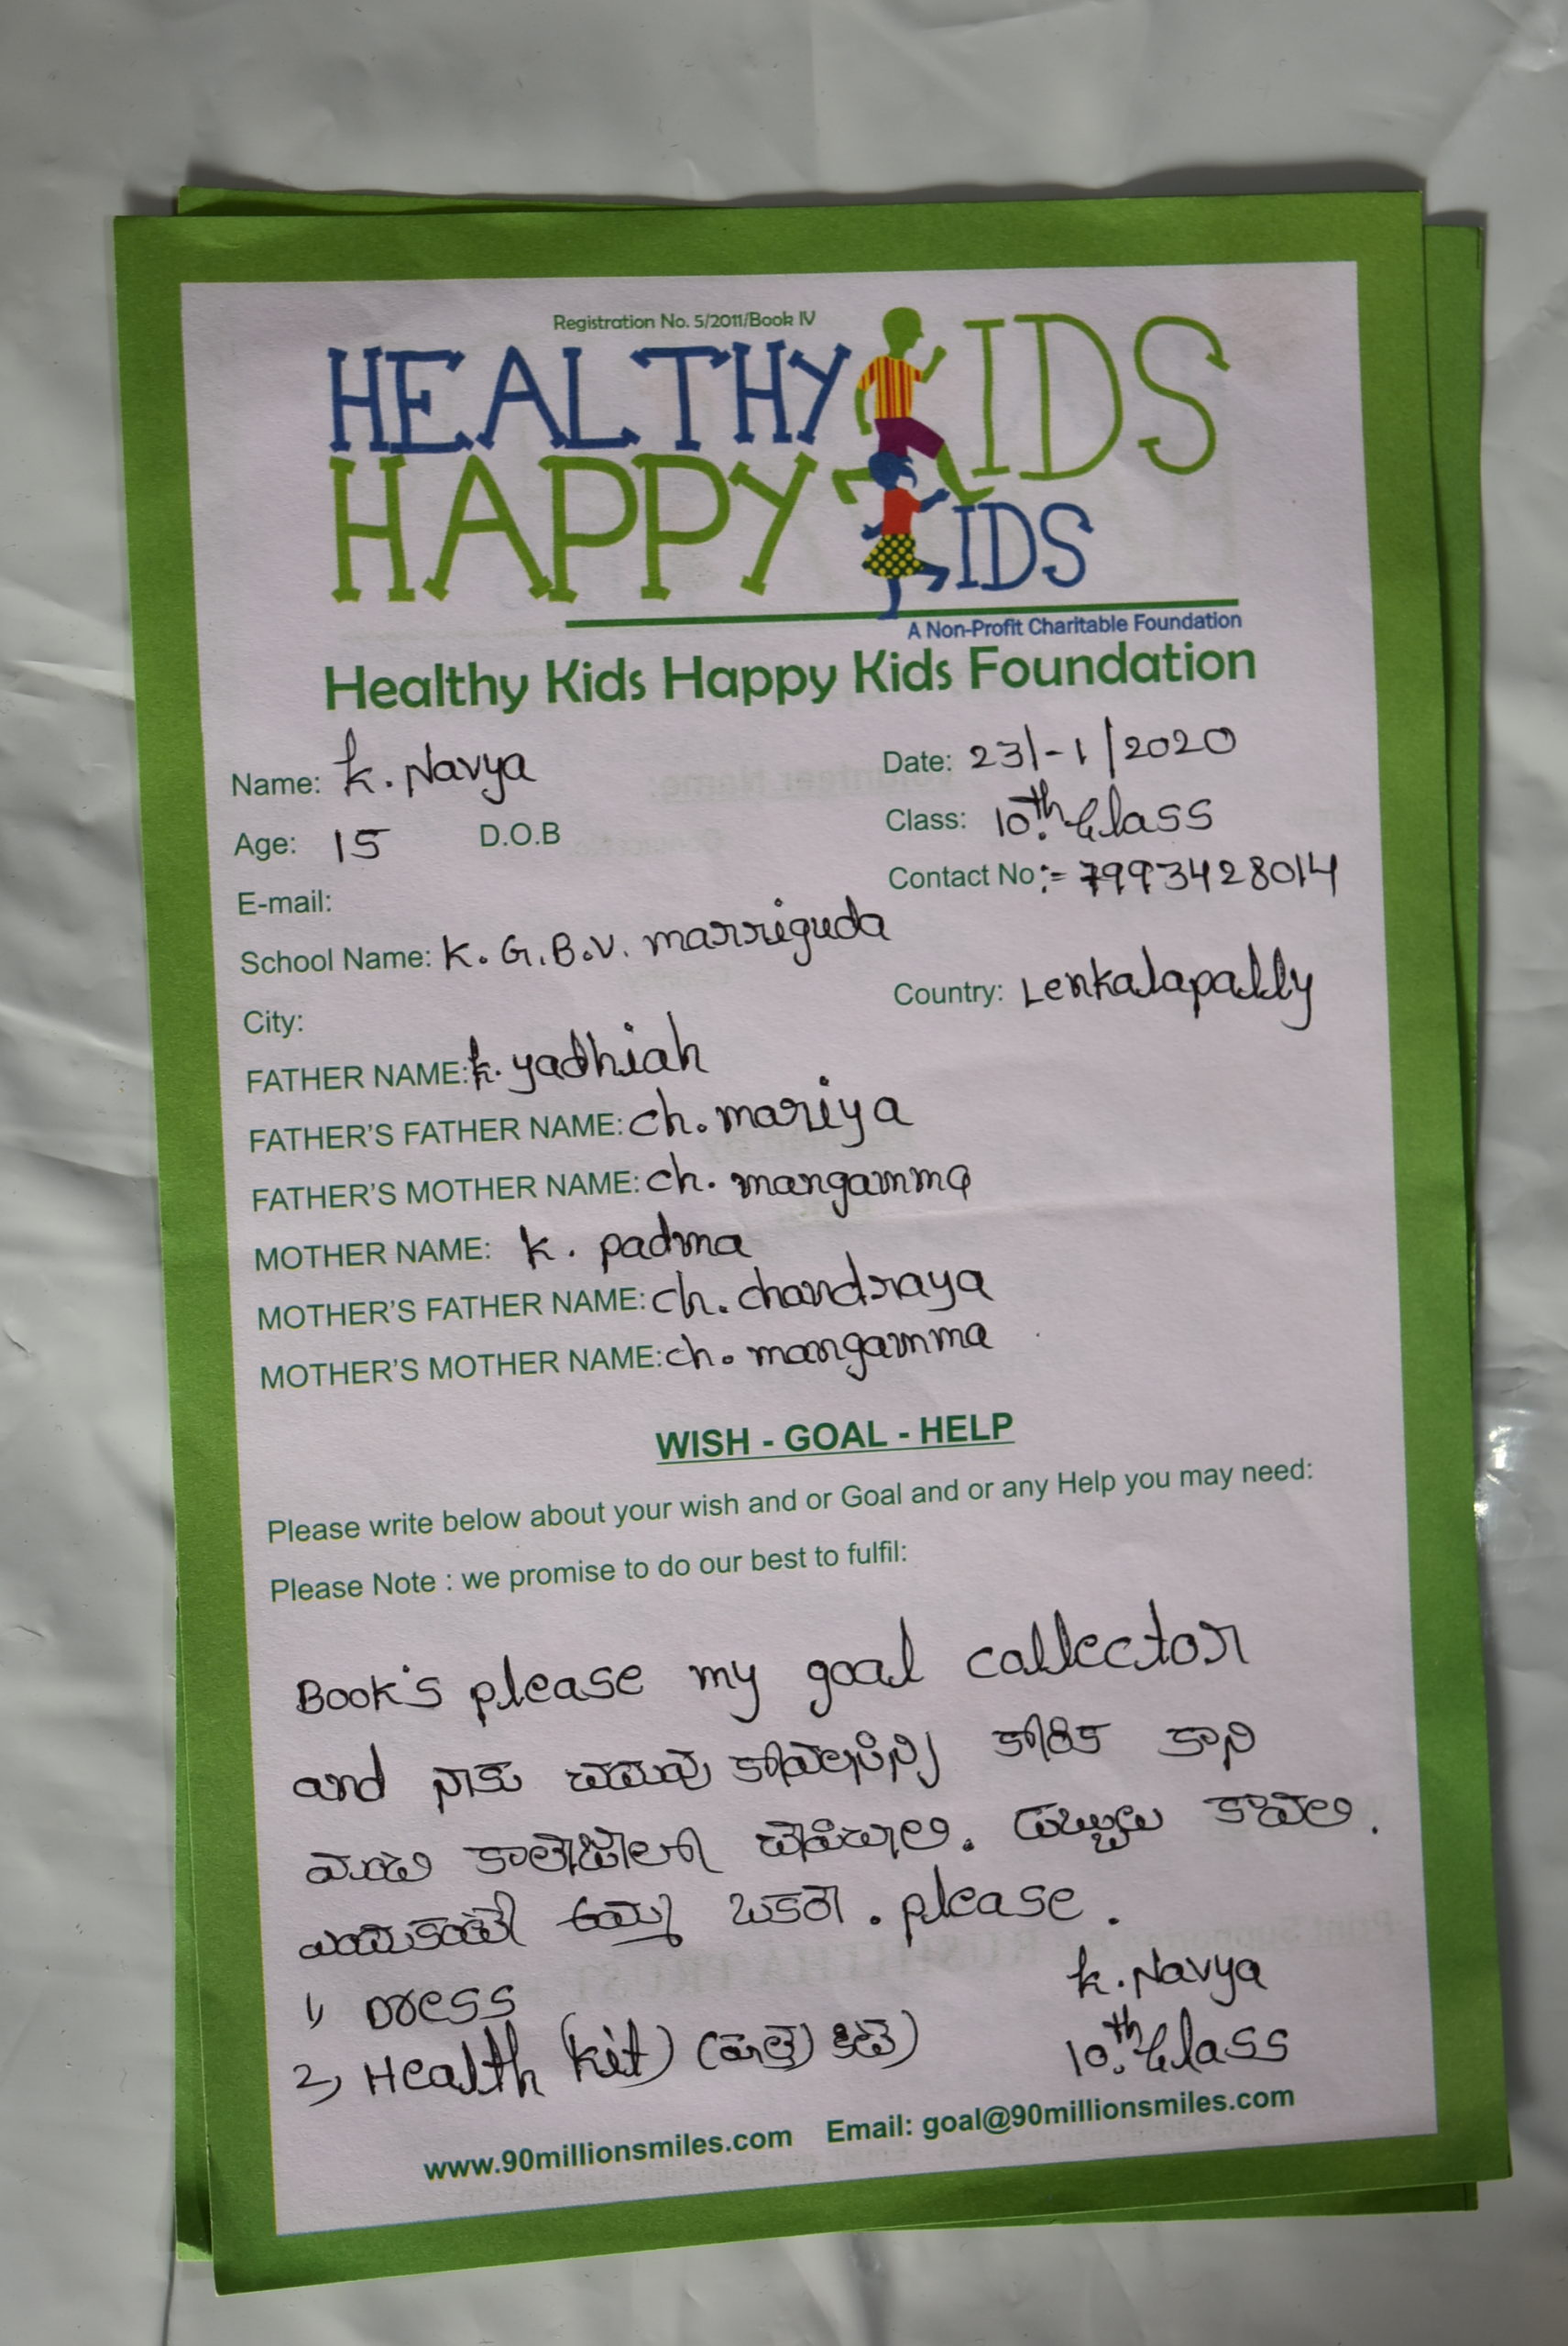 Registration No. 5/2011/Book IV
HEALTHY KIDS
HAPPY KIDS
A Non-Profit Charitable Foundation
Healthy Kids Happy Kids Foundation
Name: K. Navya Date: 23/-1/2020
Age: 15 D.O.B Class: 10th class
E-mail: Contact No:- 7993428014
School Name: K. G.B.V. marriguda
City: Country: Lenkalapally
FATHER NAME: K. yadhiah
FATHER'S FATHER NAME: ch. mariya
FATHER'S MOTHER NAME: ch. mangamma
MOTHER NAME: K. padma
MOTHER'S FATHER NAME: ch. chandraya
MOTHER'S MOTHER NAME: ch. mangamma
WISH - GOAL - HELP
Please write below about your wish and or Goal and or any Help you may need:
Please Note : we promise to do our best to fulfil:
Book's please my goal callector
and నాకు చదువు కోవాలనిన్ని కోరిక కాని
మంచి కాలేజీలో చేపించాలి. డబ్బులు కావలి.
ఎందుకంటే అమ్మ ఒకరే. please.
1, Dress K. Navya
2, Health (kit) (హెల్త్ కిట్) 10th class
www.90millionsmiles.com Email: goal@90millionsmiles.com